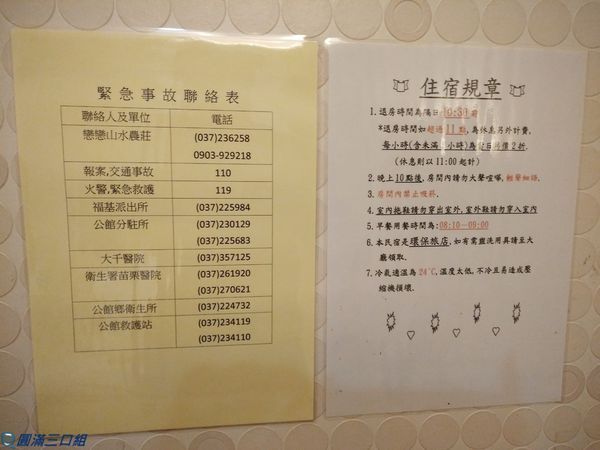 緊急事故聯絡表
聯絡人及單位 電話
戀戀山水農莊 (037)236258
0903-929218
報案,交通事故 110
火警,緊急救護 119
福基派出所 (037)225984
公館分駐所 (037)230129
(037)225683
大千醫院 (037)357125
衛生署苗栗醫院 (037)261920
(037)270621
公館鄉衛生所 (037)224732
公館救護站 (037)234119
(037)234110
住宿規章
1.退房時間為隔日10:30前
*退房時間如超過11點,為休息另外計費,
每小時(含未滿一小時)為定日房價2折.
(休息則以11:00起計)
2.晚上10點後,房間內請勿大聲喧嘩,輕聲細語.
3.房間內禁止吸菸.
4.室內拖鞋請勿穿出室外,室外鞋請勿穿入室內
5.早餐用餐時間為:08:10~09:00
6.本民宿是環保旅店,如有需盥洗用具請至大
廳領取.
7.冷氣適溫為24℃,溫度太低,不冷且易造成壓
縮機損壞.
圓滿三口組